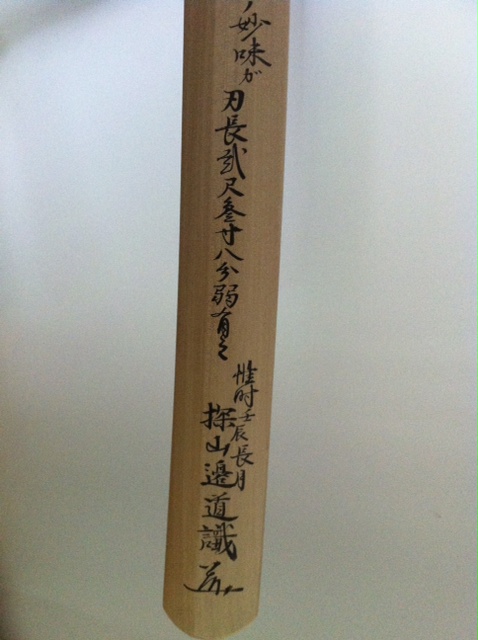 ノ妙味が
刃長弐尺参寸八分弱有之
惟時壬辰長月
探山邉道識